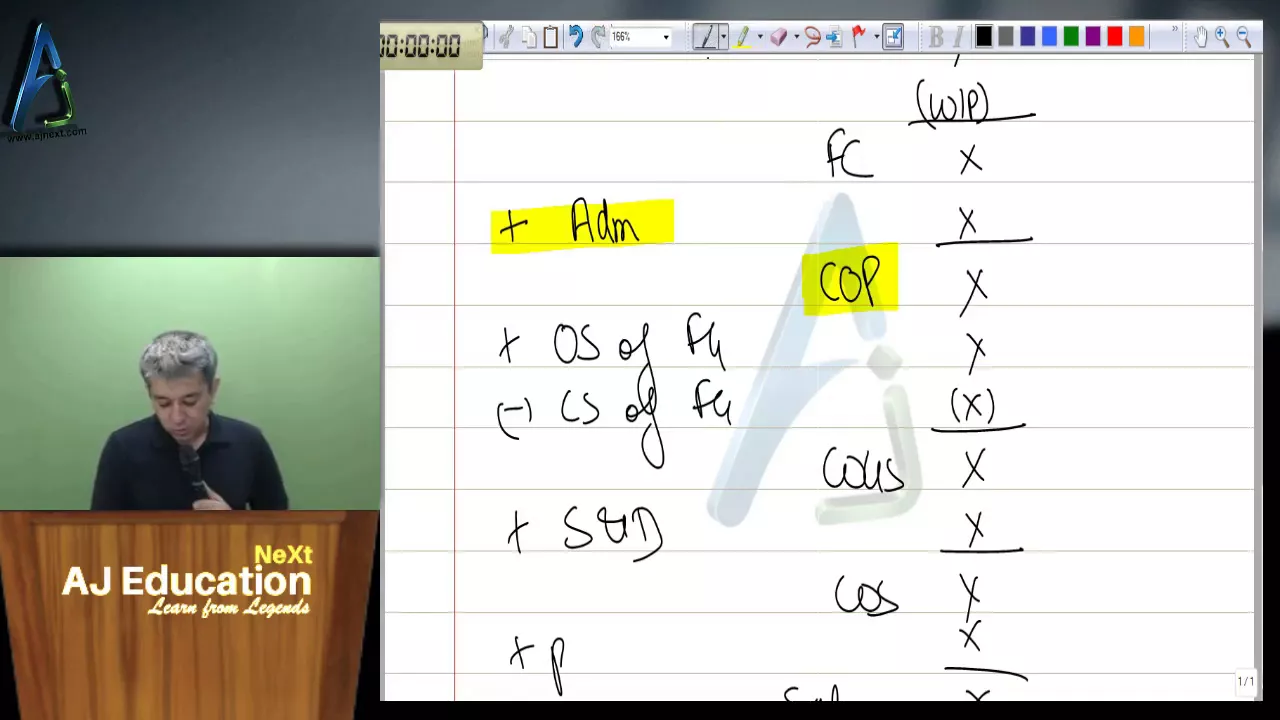 00:00:00
166%
B I
www.ajnext.com
(WIP)
FC X
+ Adm X
COP X
+ OS of FG X
(-) CS of FG (X)
COGS X
+ S&D X
COS X
+ P X
X
1/1
NeXt
AJ Education
Learn from Legends